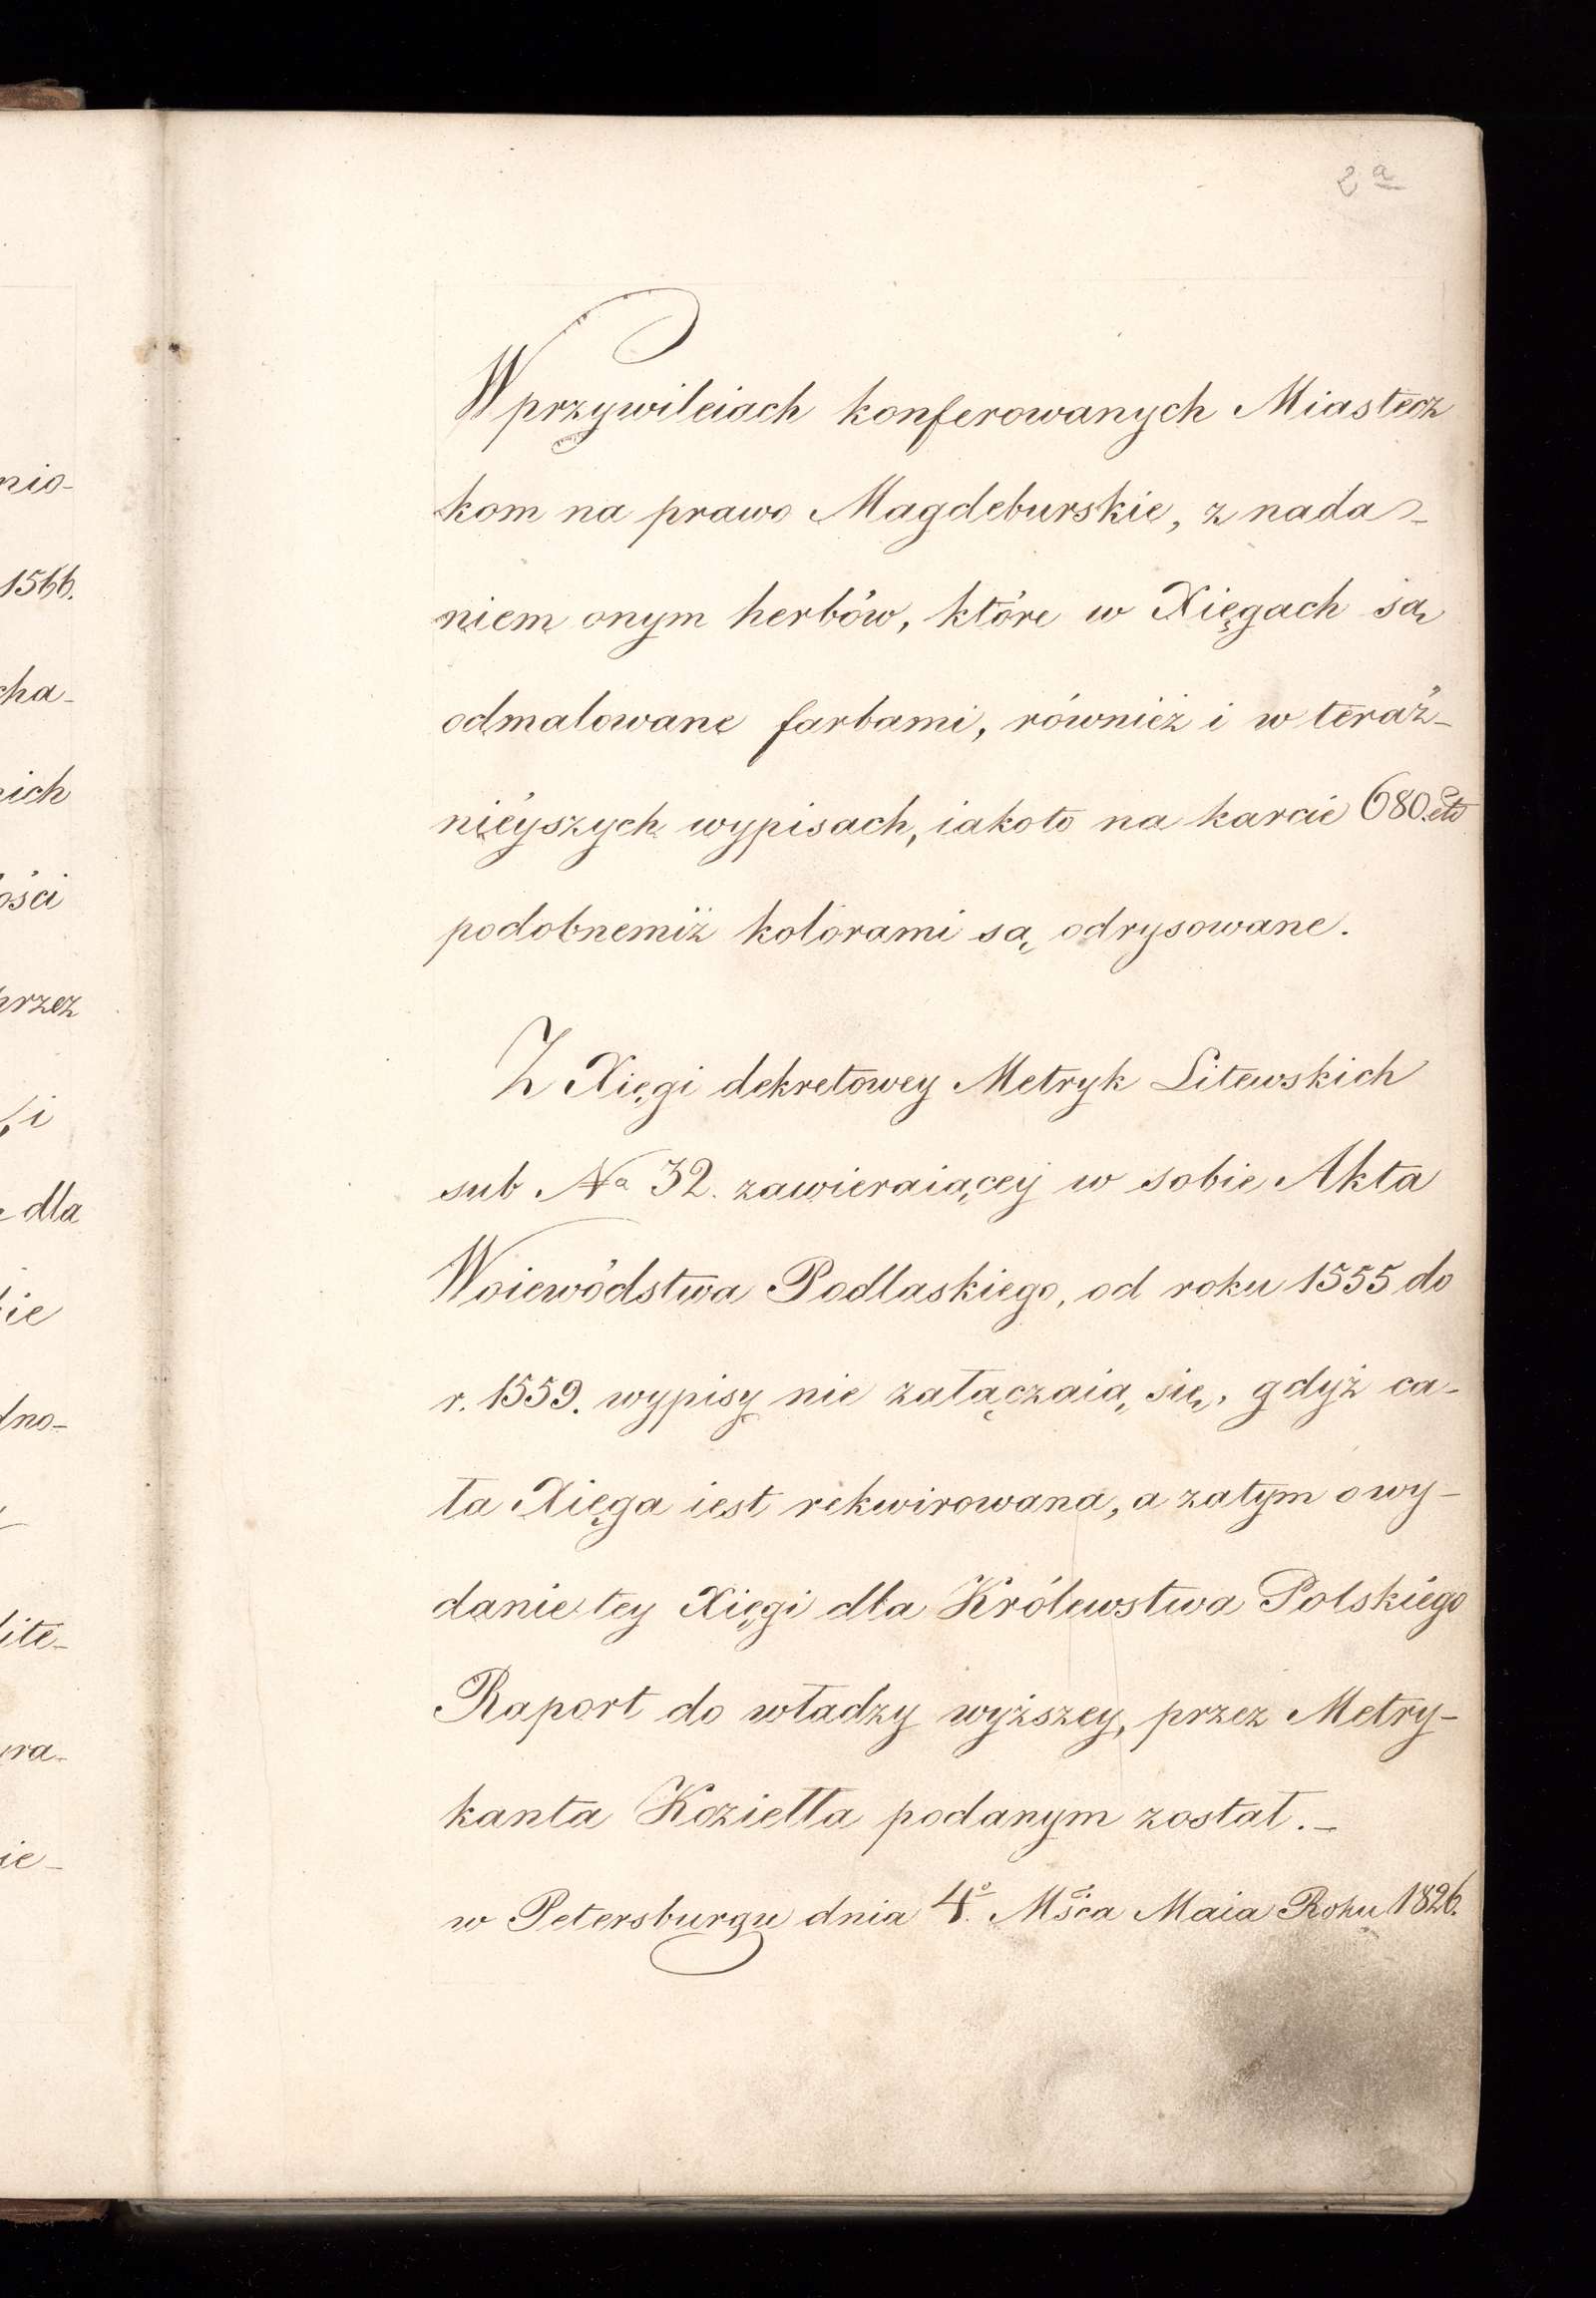 2 a
W przywileiach konferowanych Miastecz
kom na prawo Magdeburskie, z nada-
niem onym herbów, które w Xięgach są
odmalowane farbami, również i w teraź-
nieyszych wypisach, iakoto na karcie 680. etc
podobnemiż kolorami są odrysowane.
Z Xięgi dekretowey Metryk Litewskich
sub Na 32. zawieraiącey w sobie Akta
Woiewództwa Podlaskiego, od roku 1555 do
r. 1559. wypisy nie załączaią się, gdyż ca-
ła Xięga iest rekwirowana, a zatym o wy-
danie tey Xięgi dla Królewstwa Polskiego
Raport do władzy wyższey, przez Metry-
kanta Koziełła podanym został.-
w Petersburgu dnia 4o. Mśca Maia Roku 1826.
nio-
1566.
cha-
nich
ości
przez
i
dla
ie
dno-
lite-
ra-
ie-